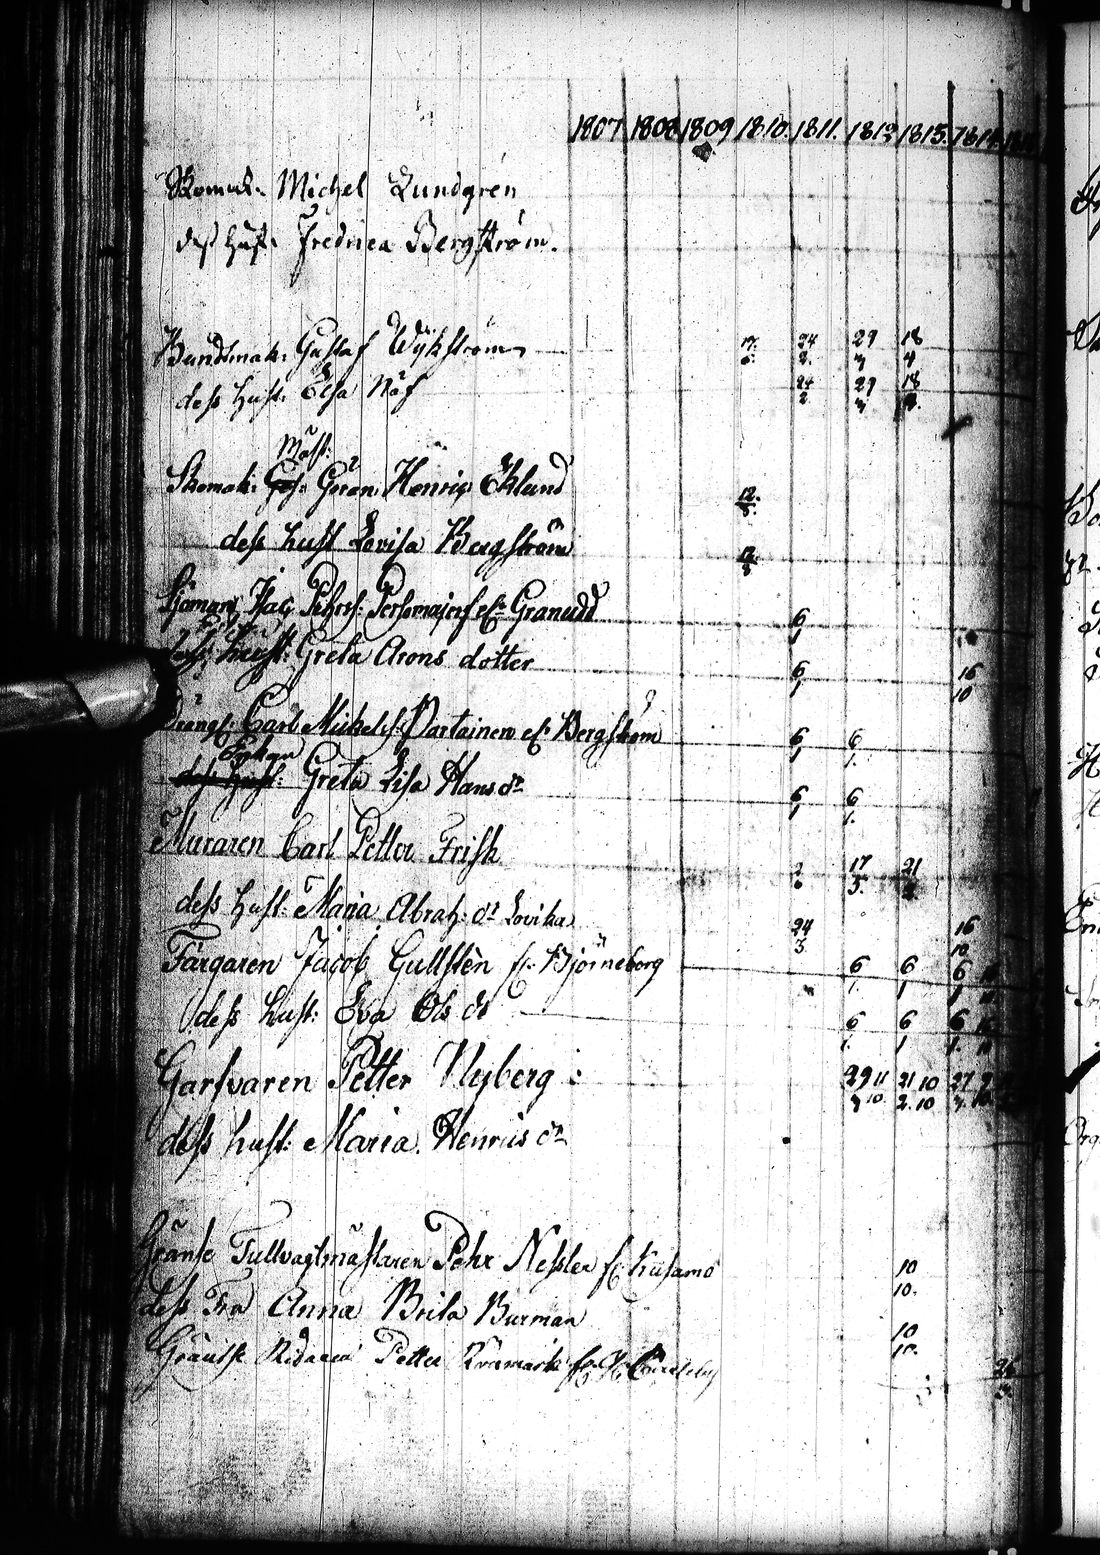 1807 1808 1809 1810. 1811. 1812 1813. 1814.
Skomak. Michel Lundgren
dess hust. Fredrica Bergström.
Bundtmak: Gustaf Wijkström 17. 24 29 18
6. 2. 3 4
dess hust. Elsa Näf 24 29 18
2 3
Mäst:
Skomak: Göran Henric Eklund 12.
8.
dess hust Lovisa Bergström 12
8
Sjöman Jac. Pehrs: Granudd 6
1
hust: Greta Arons dotter 6 16
1 10
Dräng: Carl Michels: Partainen Bergström 6 6
1 1.
Fästqn
dess hust: Greta Lisa Hans dr 6 6
1 1.
Muraren Carl Petter Frisk 17 21
3.
dess hust: Maria Abrah: dr Lovika 24 16
3. 10
Färgaren Jacob Gullstén fr. Björneborg 6 6 6
1. 1 1
dess hust: Eva Ols dr 6 6 6
1. 1 1.
Garfvaren Petter Nyberg : 29 11 21 10 27
3 10 2. 10 3.
dess hust: Maria Henrics dr
Gräntse Tullvagtmästaren Pehr Nessler fr Kusamo 10
10.
dess Fru Anna Brita Burman 10
10.
Gräntse Ridaren Petter